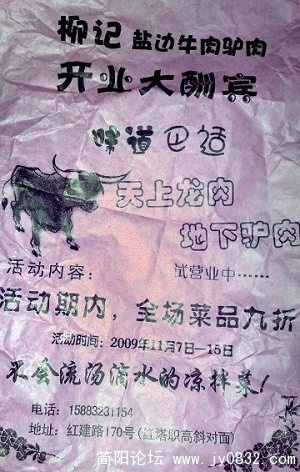 柳记 盐边牛肉驴肉
开业大酬宾
味道巴适
天上龙肉
地下驴肉
活动内容： 试营业中……
活动期内，全场菜品九折
活动时间：2009年11月7日—15日
不会流汤滴水的凉拌菜！
电话：15883231154
地址：红建路170号(红塔职高斜对面)
简阳论坛 - www.jy0832.com